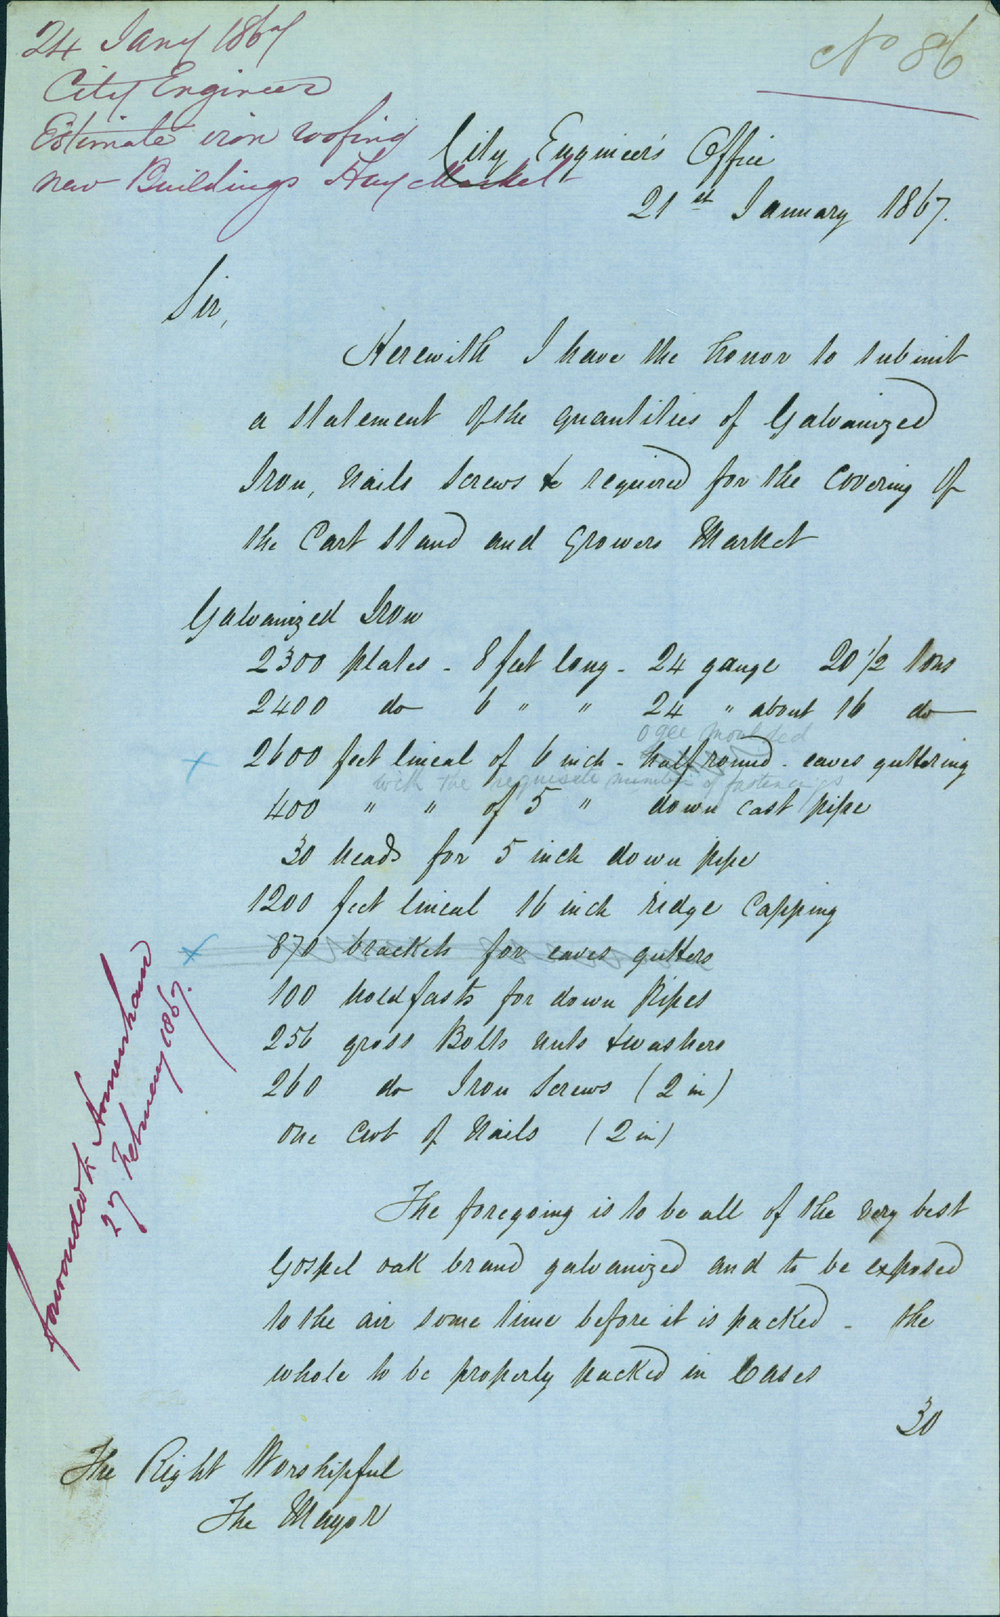 24 Jany 1867
City Engineer
Estimate iron roofing
new Buildings Hay Market
No 86
City Engineer's Office
21st January 1867.
Sir,
Herewith I have the honor to submit
a statement of the quantities of Galvanized
Iron, Nails Screws &c required for the covering of
the Cart Stand and Growers Market
Galvanized Iron
2300 plates - 8 feet long - 24 gauge 20 1/2 tons
2400 do 6 " " 24 " about 16 do
ogee moulded
2600 feet lineal of 6 inch - half round - eaves guttering
with the requisite number of fastenings
400 " " of 5 " down cast pipe
30 heads for 5 inch down pipe
1200 feet lineal 16 inch ridge Capping
870 brackets for eaves gutters
100 holdfasts for down Pipes
256 gross Bolts nuts & washers
260 do Iron Screws (2 in)
one Cwt of Nails (2 in)
The foregoing is to be all of the very best
Gospel oak brand galvanized and to be exposed
to the air some time before it is packed - the
whole to be properly packed in Cases
30
The Right Worshipful
The Mayor
forwarded to
27 February 1867.